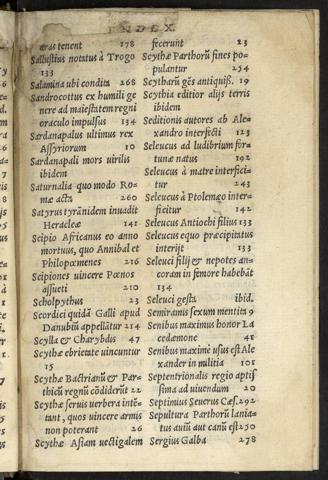 INDEX.
æras tenent 178
Sallustius notatus à Trogo
133
Salamina ubi condita 268
Sandrocottus ex humili ge
nere ad maiestatem regni
oraculo impulsus 134
Sardanapalus ultimus rex
Assyriorum 10
Sardanapali mors uirilis
ibidem
Saturnalia quo modo Ro-
mæ acta 260
Satyrus tyrānidem inuadit
Heracleæ 141
Scipio Africanus eo anno
mortuus, quo Annibal et
Philopœmenes 216
Scipiones uincere Pœnos
assueti 210
Scholpythus 23
Scordici quidā Galli apud
Danubiū appellātur 214
Scylla & Charybdis 47
Scythæ ebrietate uincuntur
15
Scythæ Bactrianū & Par-
thicū regnū cōdiderūt 22
Scythæ seruis uerbera intē-
tant, quos uincere armis
non poterant 26
Scythæ Asiam uectigalem
fecerunt 23
Scythæ Parthorū fines po-
pulantur 254
Scytharū gēs antiquiß. 19
Scythia editior alijs terris
ibidem
Seditionis autores ab Ale-
xandro interfecti 123
Seleucus ad ludibrium for-
tunæ natus 192
Seleucus à matre interfici-
tur 243
Seleucus à Ptolemæo inter-
ficitur 142
Seleucus Antiochi filius 133
Seleucus equo præcipitatus
interijt 133
Seleuci filij & nepotes an-
coram in femore habebāt
134
Seleuci gesta ibid.
Semiramis sexum mentita 9
Senibus maximus honor La
cedæmone 41
Senibus maximè usus est Ale
xander in militia 101
Septentrionalis regio aptiß
sima ad uiuendum 20
Septimius Seuerus Cæs. 292
Sepultura Parthorū lania-
tus auiū aut canū est 250
Sergius Galba 278